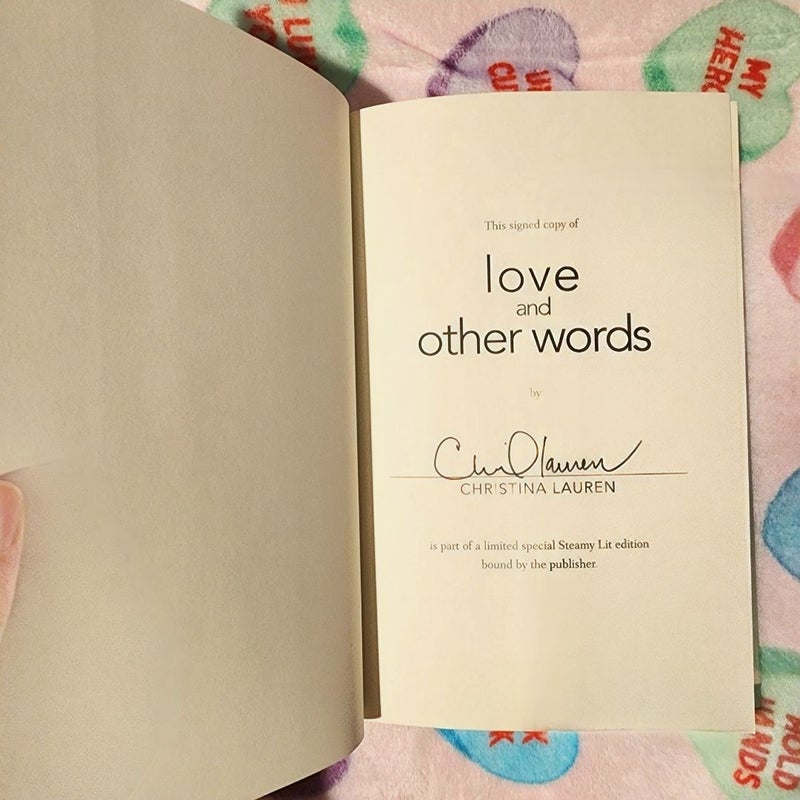 This signed copy of
love
and
other words
by
CHRISTINA LAUREN
is part of a limited special Steamy Lit edition
bound by the publisher.
MY
HERO
HOLD
HANDS